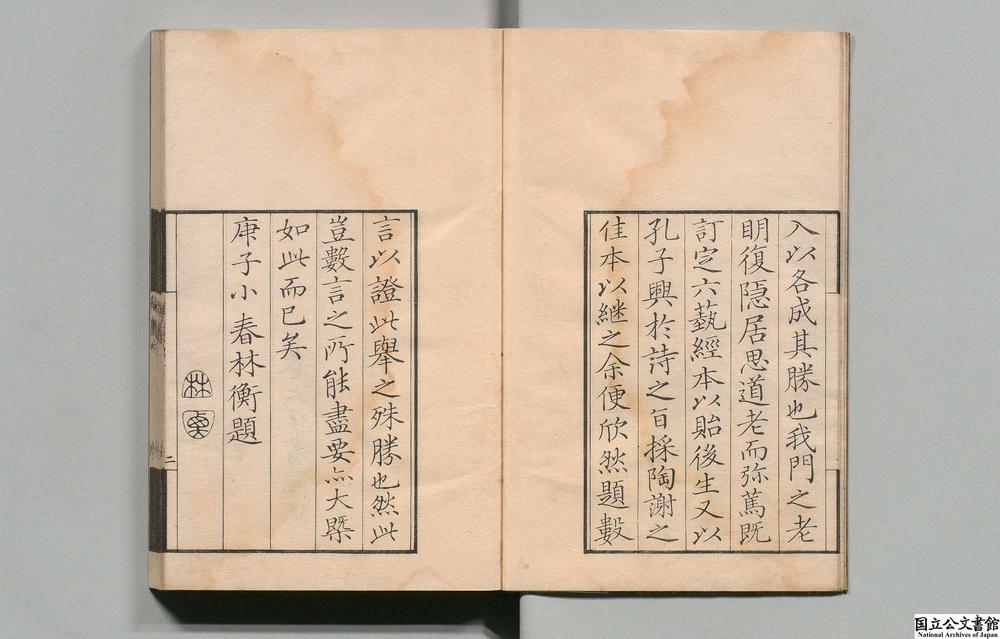 入以各成其勝也我門之老
明復隠居思道老而弥篤既
訂定六藝經本以貽後生又以
孔子興於詩之旨採陶謝之
佳本以継之余便欣然題數
言以證此舉之殊勝也然此
豈數言之所能盡要亦大槩
如此而已矣
庚子小春林衡題
林
二
国立公文書館
National Archives of Japan